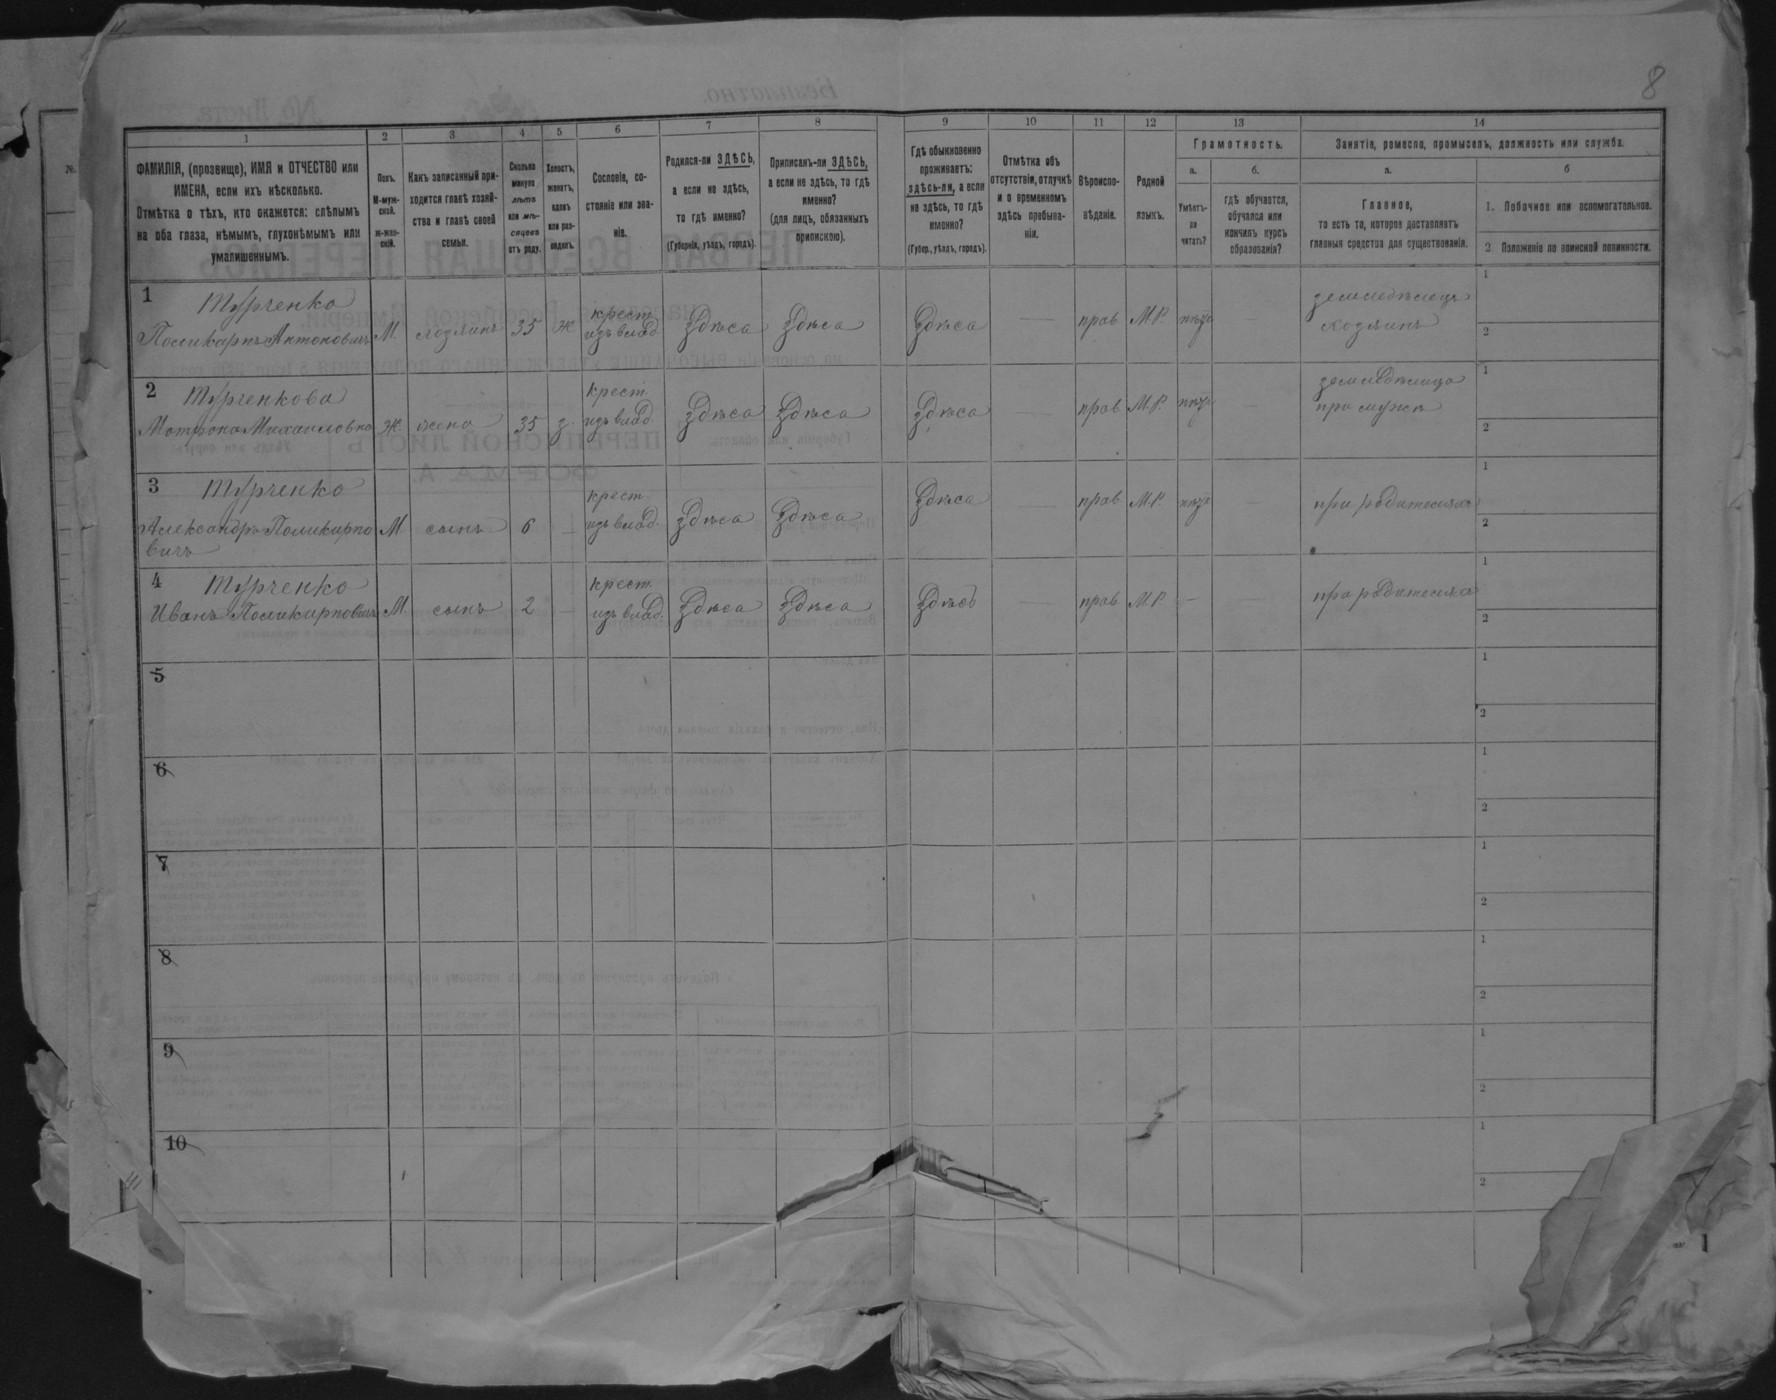 8
1 2 3 4 5 6 7 8 9 10 11 12 13 14
ФАМИЛІЯ, (прозвище), ИМЯ и ОТЧЕСТВО или
ИМЕНА, если ихъ нѣсколько.
Отмѣтка о тѣхъ, кто окажется: слѣпымъ
на оба глаза, нѣмымъ, глухонѣмымъ или
умалишеннымъ.
Полъ.
М-муж-
ской.
ж-жен-
скій.
Какъ записанный при-
ходится главѣ хозяй-
ства и главѣ своей
семьи.
Сколько
минуло
лѣтъ
или мѣ-
сяцевъ
отъ роду.
Холостъ,
женатъ,
вдовъ
или раз-
веденъ.
Сословіе, со-
стояніе или зва-
ніе.
Родился-ли ЗДѢСЬ,
а если не здѣсь,
то гдѣ именно?
(Губернія, уѣздъ, городъ).
Приписанъ-ли ЗДѢСЬ,
а если не здѣсь, то гдѣ
именно?
(для лицъ, обязанныхъ
припискою).
Гдѣ обыкновенно
проживаетъ:
здѣсь-ли, а если
не здѣсь, то гдѣ
именно?
(Губер., уѣздъ, городъ).
Отмѣтка объ
отсутствіи, отлучкѣ
и о временномъ
здѣсь пребыва-
ніи.
Вѣроиспо-
вѣданіе.
Родной
языкъ.
Грамотность.
а.
Умѣетъ-
ли
читать?
б.
гдѣ обучается,
обучался или
кончилъ курсъ
образованія?
Занятіе, ремесло, промыселъ, должность или служба.
а.
Главное,
то есть то, которое доставляетъ
главныя средства для существованія.
б
1. Побочное или вспомогательное.
2 Положеніе по воинской повинности.
1 Турченко
Поликарпъ Антоновичъ М. хозяинъ 35 ж крест. изъ влад. Здѣсь Здѣсь Здѣсь — прав М.Р. — земледѣлецъ хозяинъ 1 2
2 Турченкова
Матрона Михаиловна ж. жена 35 з. крест. изъ влад. Здѣсь Здѣсь Здѣсь — прав М.Р. — земледѣлица при мужѣ 1 2
3 Турченко
Александръ Поликарпо
вичъ М сынъ 6 — крест. изъ влад. Здѣсь Здѣсь Здѣсь — прав М.Р. — при родителяхъ 1 2
4 Турченко
Иванъ Поликарповичъ М. сынъ 2 — крест. изъ влад. Здѣсь Здѣсь Здѣсь — прав М.Р. — при родителяхъ 1 2
5 1 2
6 1 2
7 1 2
8 1 2
9 1 2
10 1 2